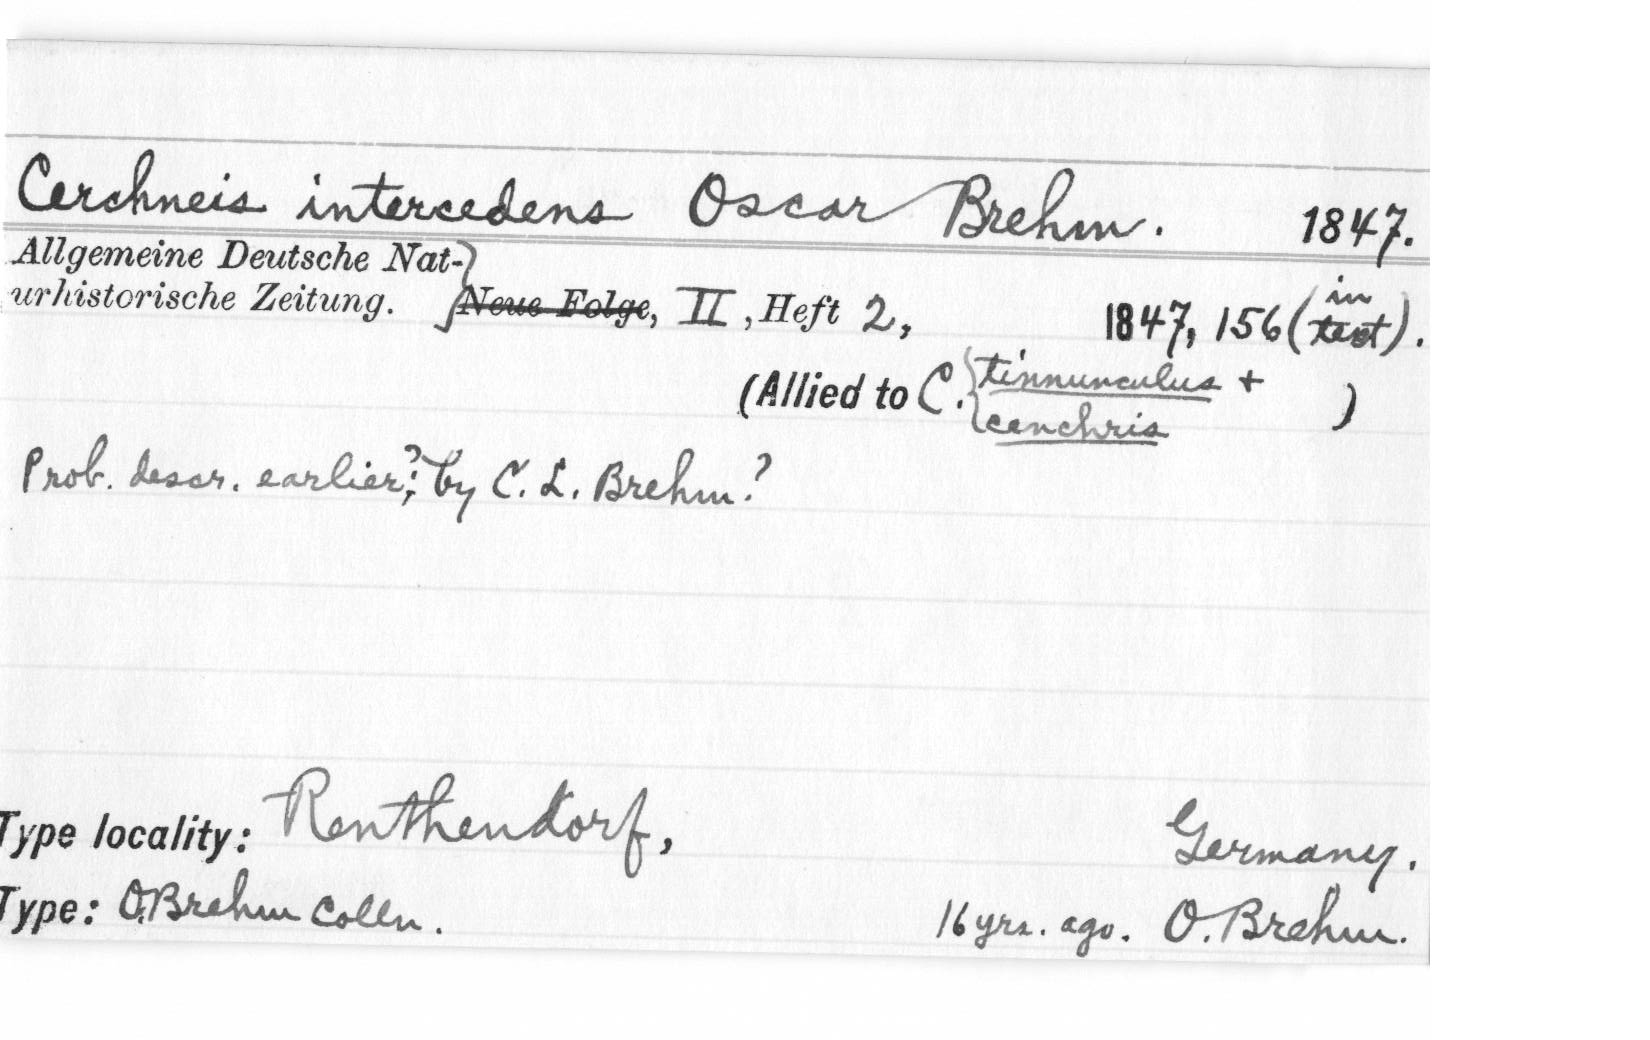 Cerchneis intercedens Oscar Brehm. 1847.
Allgemeine Deutsche Nat-
urhistorische Zeitung. Neue Folge, II, Heft 2, 1847, 156 (in text).
(Allied to C. { tinnunculus +
cenchris )
Prob. descr. earlier?; by C. L. Brehm?
Type locality: Renthendorf, Germany.
Type: O. Brehm Colln. 16 yrs. ago. O. Brehm.